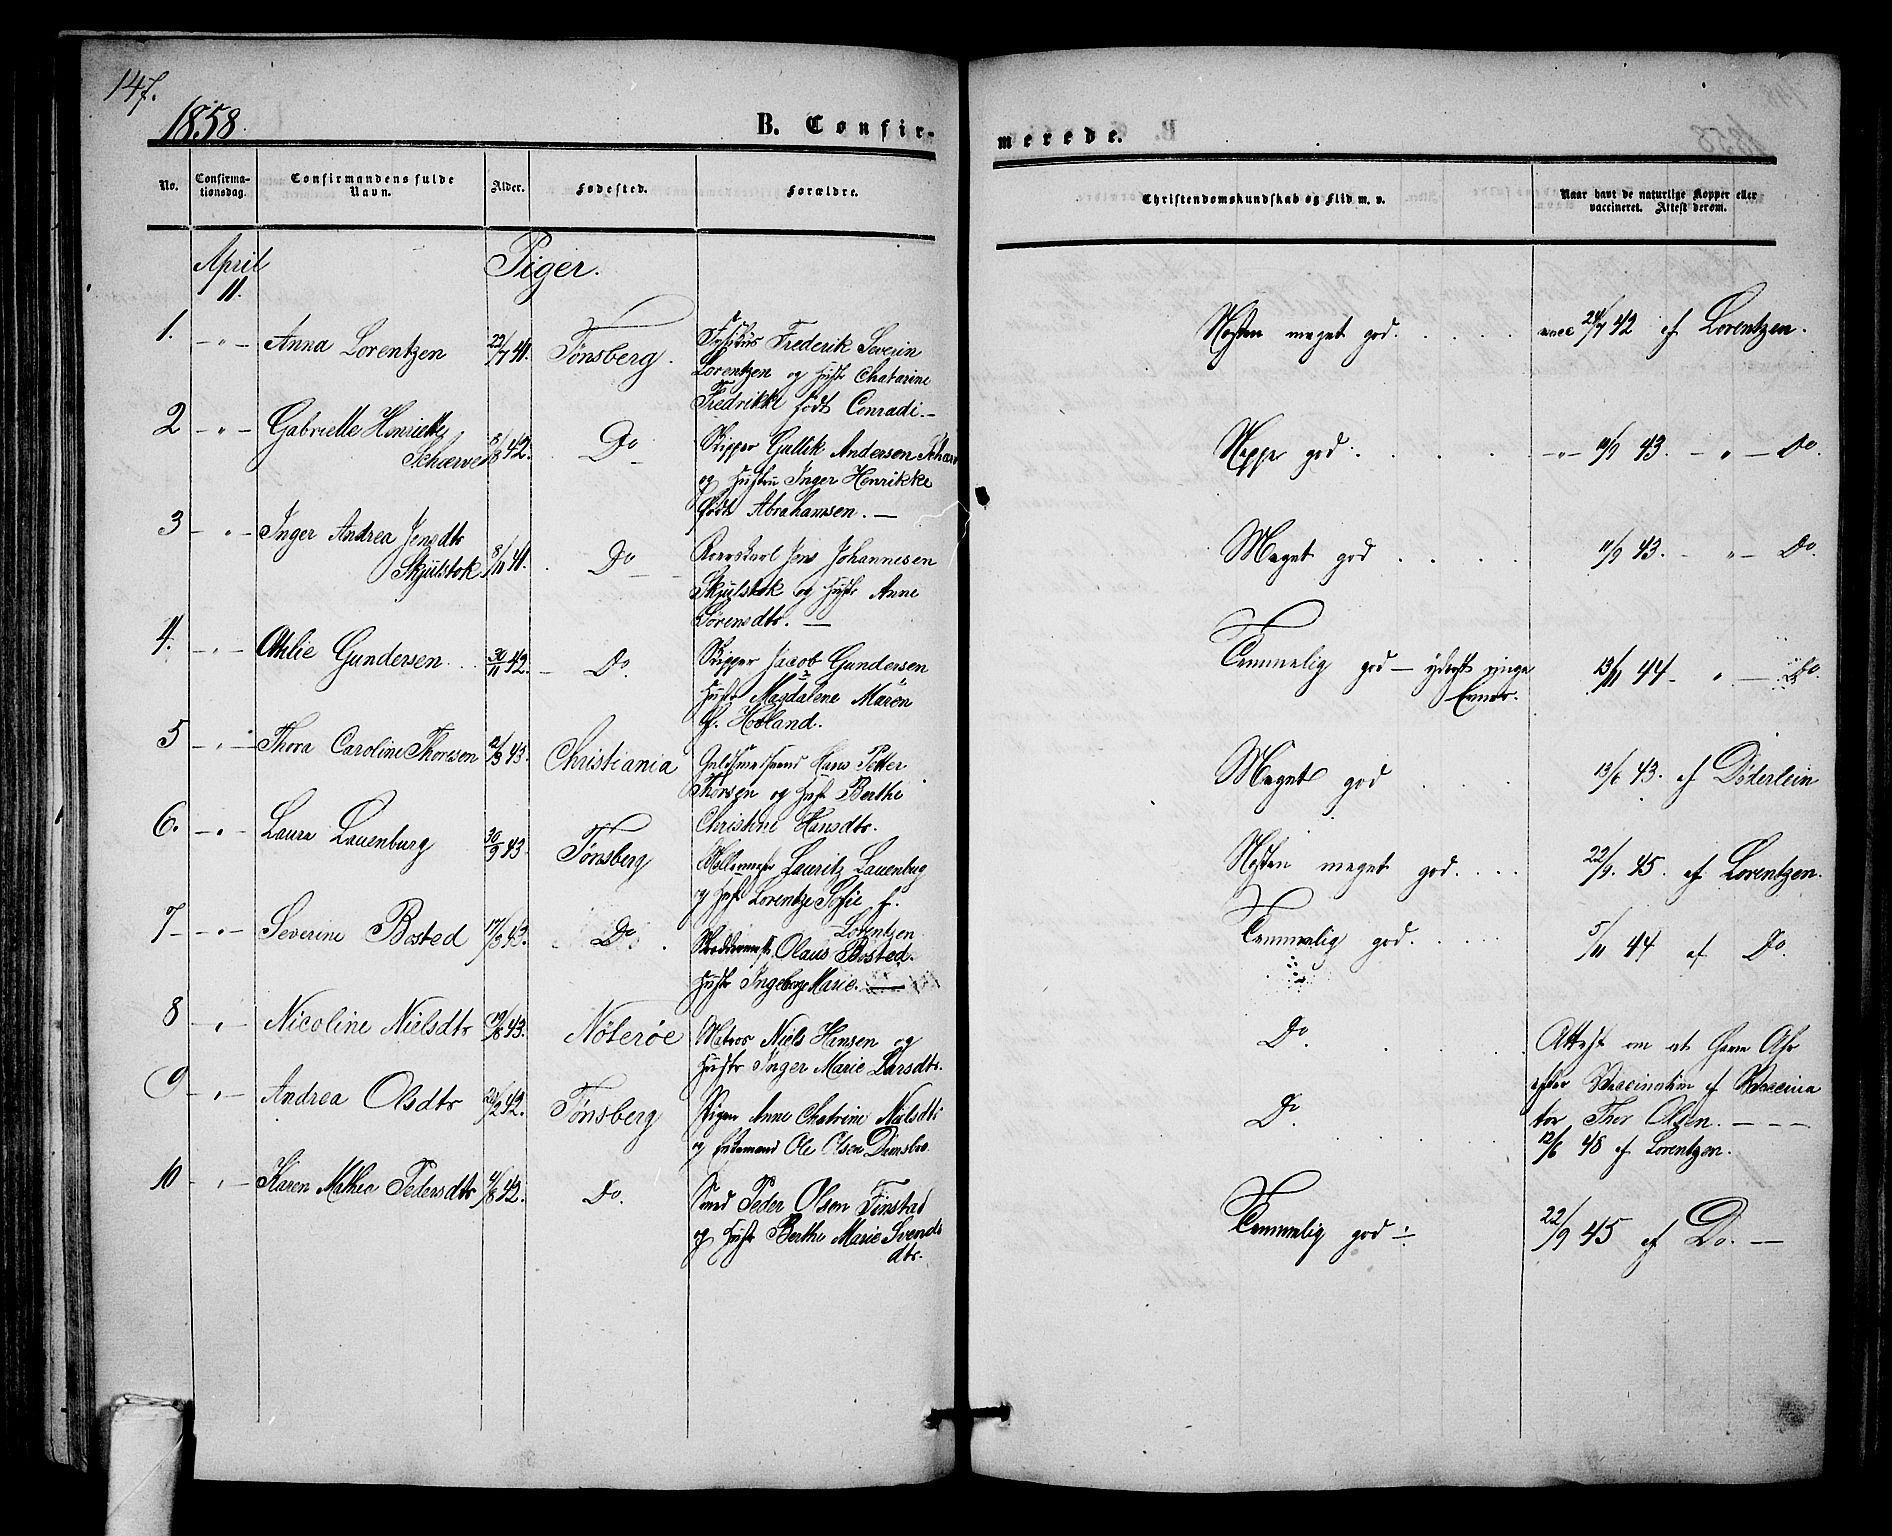 147.
1858.
B. Confir-
merede.
No.
Confirma-
tionsdag.
Confirmandens fulde
Navn.
Alder.
Fødested.
Forældre.
Christendomskundskab og Flid m. v.
Naar havt de naturlige Kopper eller
vaccineret. Attest derom.
April
11.
Piger.
1. - " - Anna Lorentzen 22/7 41. Tønsberg. Fysikus Frederik Severin
Lorentzen og Hustr Chatarine
Fredrikke født Conradi. -
Næsten meget god. . . . . vacc 24/7 42 af Lorentzen.
2 - " - Gabrielle Henriette
Schærve 8/8 42. Do Skipper Gullik Andersen
og Hustru Inger Henrikke
født Abrahamsen. -
Neppe god. . . . . - " - 11/9 43. - " - Do
3 - " - Inger Andrea Jensdtr
Skjulstok 8/11 41. Do Jens Johannesen
Skjulstok og Hustr Anne
Sørensdtr. -
Meget god . . . . 11/9 43. - " - Do.
4. - " - Othlie Gundersen 30/11 42. - Do. Skipper Jacob Gundersen
Hustr Magdalene Maren
f. Holand.
Temmelig god - yderst ringe
Evner.
13/11 44 - " - Do.
5 - " - Thora Caroline Thoresen 2/3 43. Christiania Hans Petter
Thorsen og Hust Berthe
Christine Hansdtr.
Meget god . . 13/6 43. af Døderlein
6. - " - Laura Lauenburg 30/9 43. Tønsberg Lauritz Lauenburg
og Hust Lorentze Sofie f.
Lorentzen
Næsten meget god. . . . 22/9. 45. af Lorentzen.
7 - " - Severine Bosted 17/3 43. Do. Olaus Bosted.
Hustr Ingeborg Marie.
Temmelig god. . . . 5/11 44 af Do
8 - " - Nicoline Nielsdtr 19/8 43. Nøterøe Matros Niels Hansen og
Hustr Inger Marie Larsdtr.
Do. . . . Attest om at have Ahr
efter Vaccination af Vaccina
tor Thor Olsen. - - -
9 - " - Andrea Olsdtr 42. Tønsberg Pigen Anne Chatrine Nielsdtr
og Ole Olsen
Do . . . 12/6 48 af Lorentzen.
10 - " - Karen Mathea Pedersdtr 42. Do. Smed Peder Olsen Finstad
og Hustr Berthe Marie Svends
dtr.
Temmelig god - 22/9 45 af Do. -